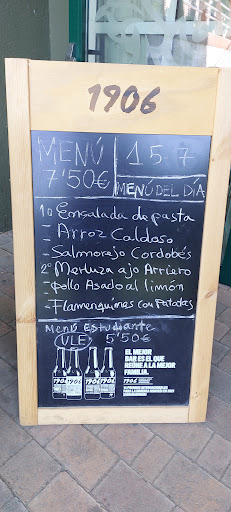 1906
MENÚ
7'50€
15.7
MENÚ DEL DÍA
1º Ensalada de pasta
- Arroz Caldoso
- Salmorejo Cordobés
2º Merluza ajo Arriero
- Pollo Asado al limón
- Flamenquines con Patatas
Menú Estudiante
(ULE) 5'50€
EL MEJOR
BAR ES EL QUE
REÚNE A LA MEJOR
FAMILIA.
1906 1906 1906 1906
1906